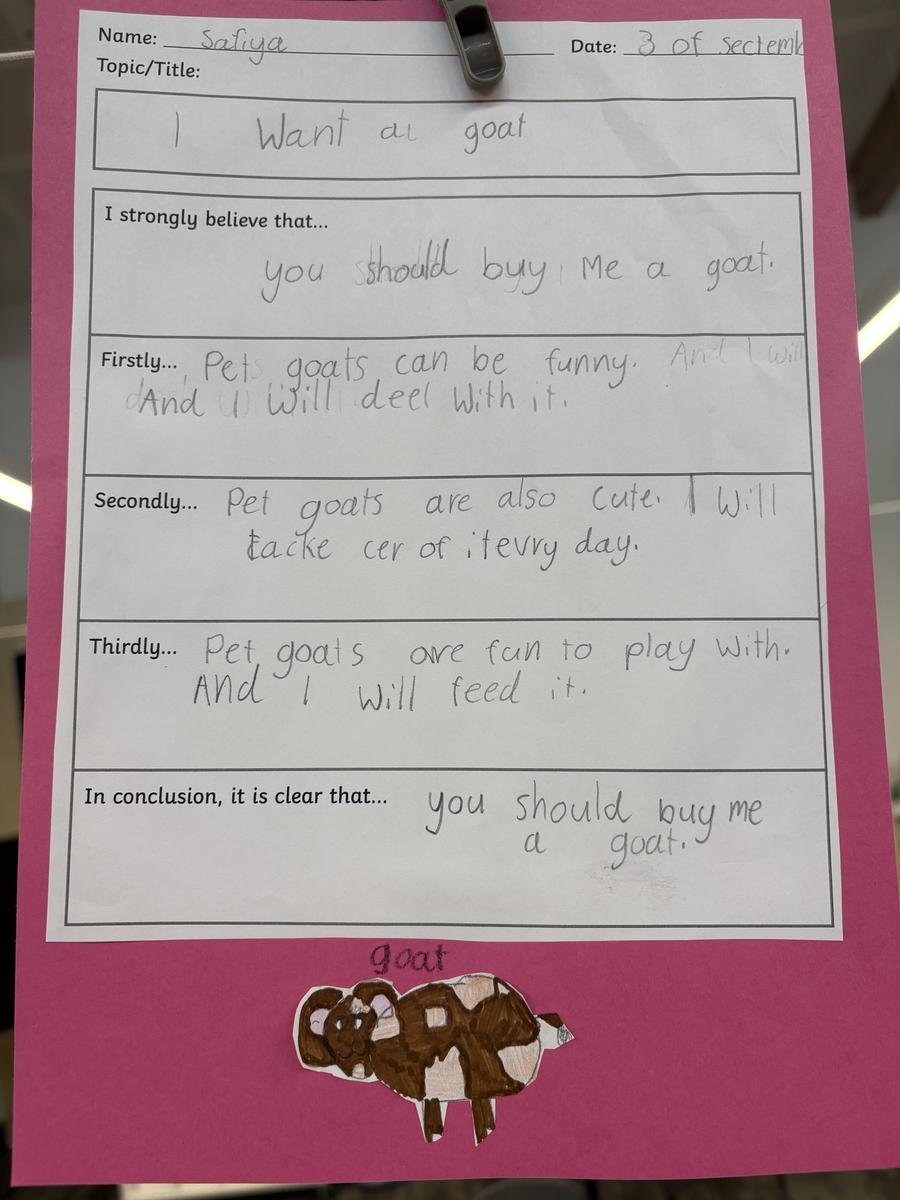 Name: Safiya Date: 3 of sectemb
Topic/Title:
I Want a goat
I strongly believe that...
you should buyy Me a goat.
Firstly... Pet goats can be funny. And I will
And I Will deel With it.
Secondly... Pet goats are also cute. I Will
tacke cer of it evry day.
Thirdly... Pet goats are fun to play with.
And I will feed it.
In conclusion, it is clear that... you should buy me
a goat.
goat